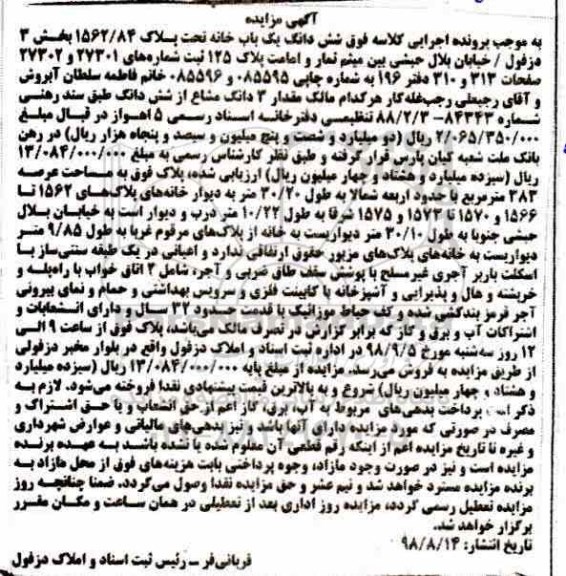 آگهی مزایده
به موجب پرونده اجرایی کلاسه فوق شش دانگ یک باب خانه تحت پلاک ۱۵۶۲/۸۴ بخش ۳
دزفول / خیابان بلال حبشی بین میثم تمار و امامت پلاک ۱۲۵ ثبت شماره‌های ۲۷۳۰۱ و ۲۷۳۰۲
صفحات ۳۱۳ و ۳۱۰ دفتر ۱۹۶ به شماره چاپی ۰۸۵۵۹۵ و ۰۸۵۵۹۶ خانم فاطمه سلطان آبروش
و آقای رجبعلی رجب‌غله‌کار هرکدام مالک مقدار ۳ دانگ مشاع از شش دانگ طبق سند رهنی
شماره ۸۴۳۴۳- ۸۸/۲/۳ تنظیمی دفترخانه اسناد رسمی ۵ اهواز در قبال مبلغ
۲/۰۶۵/۳۵۰/۰۰۰ ریال (دو میلیارد و شصت و پنج میلیون و سیصد و پنجاه هزار ریال) در رهن
بانک ملت شعبه کیان پارس قرار گرفته و طبق نظر کارشناس رسمی به مبلغ ۱۳/۰۸۴/۰۰۰/۰۰۰
ریال (سیزده میلیارد و هشتاد و چهار میلیون ریال) ارزیابی شده، پلاک فوق به مساحت عرصه
۳۸۳ مترمربع با حدود اربعه شمالا به طول ۳۰/۲۰ متر به دیوار خانه‌های پلاک‌های ۱۵۶۲ تا
۱۵۶۶ و ۱۵۷۰ تا ۱۵۷۳ و ۱۵۷۵ شرقا به طول ۱۰/۲۲ متر درب و دیوار است به خیابان بلال
حبشی جنوبا به طول ۳۰/۱۰ متر دیواریست به خانه از پلاک‌های مرقوم غربا به طول ۹/۸۵ متر
دیواریست به خانه‌های پلاک‌های مزبور حقوق ارتفاقی ندارد و اعیانی در یک طبقه سنتی‌ساز با
اسکلت باربر آجری غیرمسلح با پوشش سقف طاق ضربی و آجر، شامل ۲ اتاق خواب با راه‌پله و
خرپشته و هال و پذیرایی و آشپزخانه با کابینت فلزی و سرویس بهداشتی و حمام و نمای بیرونی
آجر قرمز بندکشی شده و کف حیاط موزائیک با قدمت حدود ۳۲ سال و دارای انشعابات و
اشتراکات آب و برق و گاز که برابر گزارش در تصرف مالک می‌باشد، پلاک فوق از ساعت ۹ الی
۱۲ روز سه‌شنبه مورخ ۹۸/۹/۵ در اداره ثبت اسناد و املاک دزفول واقع در بلوار مخبر دزفولی
از طریق مزایده به فروش می‌رسد. مزایده از مبلغ پایه ۱۳/۰۸۴/۰۰۰/۰۰۰ ریال (سیزده میلیارد
و هشتاد و چهار میلیون ریال) شروع و به بالاترین قیمت پیشنهادی نقدا فروخته می‌شود. لازم به
ذکر است پرداخت بدهی‌های مربوط به آب، برق، گاز اعم از حق انشعاب و یا حق اشتراک و
مصرف در صورتی که مورد مزایده دارای آنها باشد و نیز بدهی‌های مالیاتی و عوارض شهرداری
و غیره تا تاریخ مزایده اعم از اینکه رقم قطعی آن معلوم شده یا نشده باشد به عهده برنده
مزایده است و نیز در صورت وجود مازاد، وجوه پرداختی بابت هزینه‌های فوق از محل مازاد به
برنده مزایده مسترد خواهد شد و نیم عشر و حق مزایده نقدا وصول می‌گردد. ضمنا چنانچه روز
مزایده تعطیل رسمی گردد، مزایده روز اداری بعد از تعطیلی در همان ساعت و مکان مقرر
برگزار خواهد شد.
تاریخ انتشار: ۹۸/۸/۱۴
قربانی‌فر – رئیس ثبت اسناد و املاک دزفول